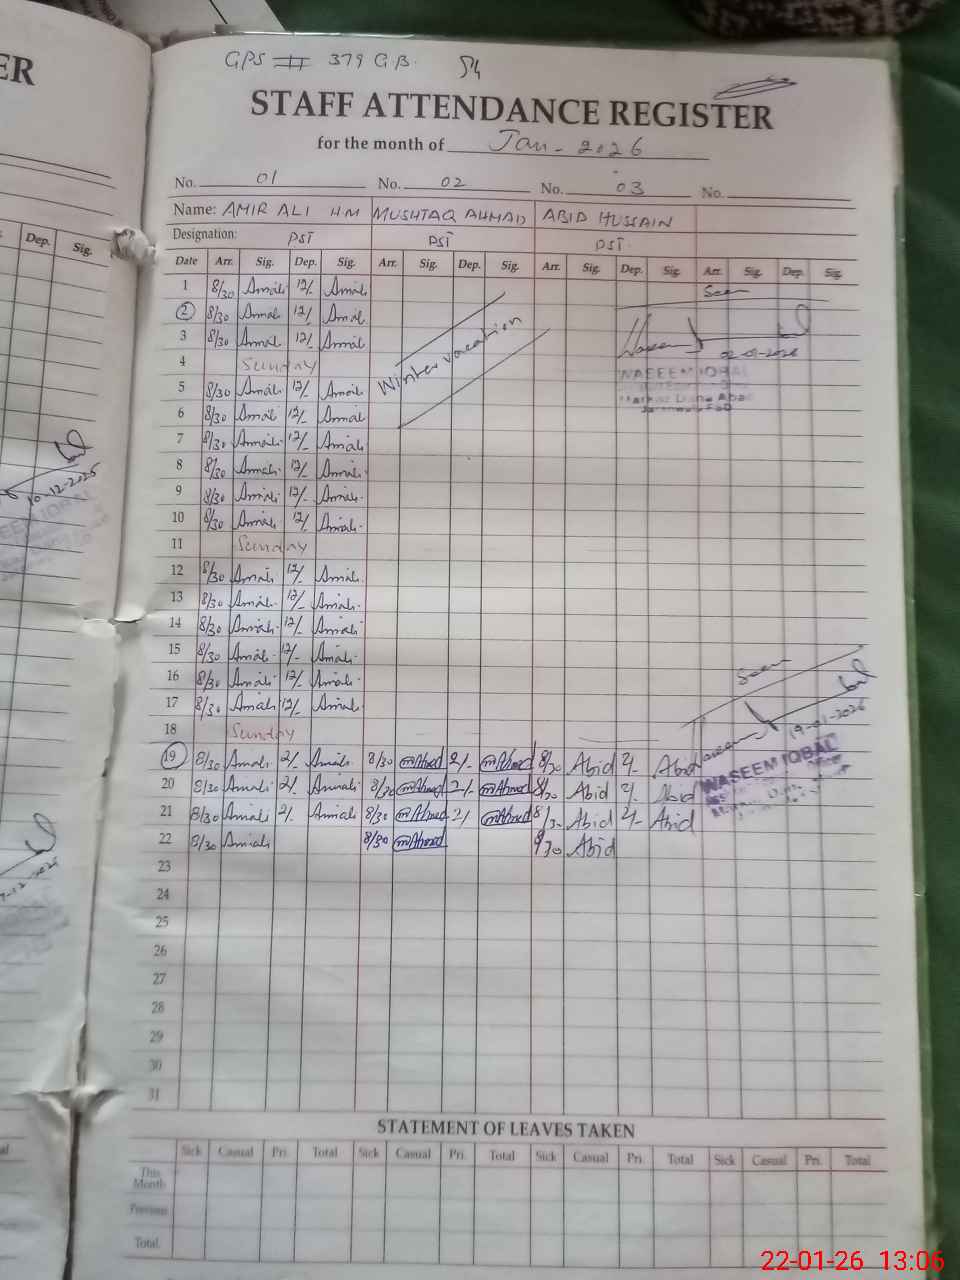 ER
GPS # 379 G.B. 54
STAFF ATTENDANCE REGISTER
for the month of Jan - 2026
No. 01 No. 02 No. 03 No.
Name: AMIR ALI HM MUSHTAQ AHMAD ABID HUSSAIN
Designation: PST PST PST
Dep. Sig.
Date Arr. Sig. Dep. Sig. Arr. Sig. Dep. Sig. Arr. Sig. Dep. Sig. Arr. Sig. Dep. Sig.
1 8/30 Amiali 12/- Amiali Seen
2 8/30 Amiali 12/- Amiali
3 8/30 Amiali 12/- Amiali Waseem 02-01-2026
4 Sunday Winter vacation WASEEM IQBAL
5 8/30 Amiali 12/- Amiali
6 8/30 Amiali 12/- Amiali
7 8/30 Amiali 12/- Amiali
8 8/30 Amiali 12/- Amiali
9 8/30 Amiali 12/- Amiali
10 8/30 Amiali 12/- Amiali
11 Sunday
12 8/30 Amiali 12/- Amiali
13 8/30 Amiali 12/- Amiali
14 8/30 Amiali 12/- Amiali
15 8/30 Amiali 12/- Amiali
16 8/30 Amiali 12/- Amiali Seen
17 8/30 Amiali 12/- Amiali
18 Sunday Waseem 19-01-2026
19 8/30 Amiali 2/- Amiali 8/30 mAhmed 2/- mAhmed 8/30 Abid 2/- Abid WASEEM IQBAL
20 8/30 Amiali 2/- Amiali 8/30 mAhmed 2/- mAhmed 8/30 Abid 2/- Abid
21 8/30 Amiali 2/- Amiali 8/30 mAhmed 2/- mAhmed 8/30 Abid 2/- Abid
22 8/30 Amiali 8/30 mAhmed 8/30 Abid
23
24
25
26
27
28
29
30
31
10-12-2025
STATEMENT OF LEAVES TAKEN
Sick Casual Pri. Total Sick Casual Pri. Total Sick Casual Pri. Total Sick Casual Pri. Total
This Month
Previous
Total
22-01-26 13:06